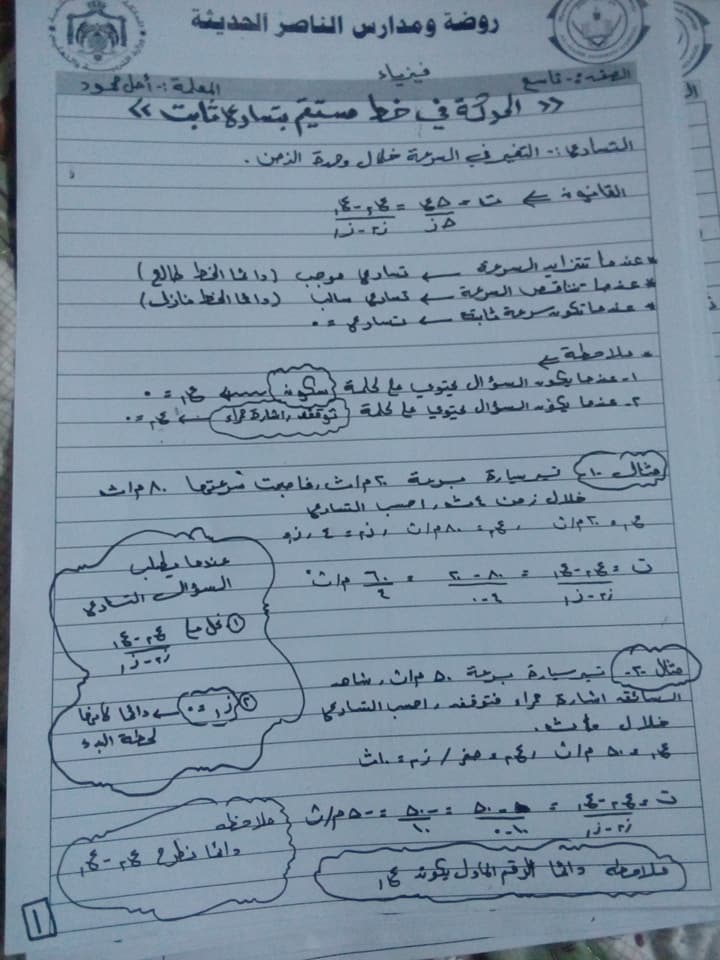 روضة ومدارس الناصر الحديثة
الصف :- تاسع
فيزياء
المعلمة :- أمل محمود
« الحركة في خط مستقيم بتسارع ثابت »
التسارع :- التغير في السرعة خلال وحدة الزمن .
القانون ← ت = Δع / Δز = ع٢ - ع١ / ز٢ - ز١
* عندما تتزايد السرعة ← تسارع موجب (دائما الخط طالع)
* عندما تتناقص السرعة ← تسارع سالب (دائما الخط نازل)
* عندما تكون سرعة ثابتة ← تسارع = ٠
* ملاحظة ←
١- عندما يكون السؤال يحتوي على كلمة سكون ← ع١ = ٠
٢- عندما يكون السؤال يحتوي على كلمة توقفت, اشارة حمراء ← ع٢ = ٠
مثال -١- تسير سيارة بسرعة ٢٠ م/ث, فاصبحت سرعتها ٨٠ م/ث
خلال زمن ٤ ث, احسب التسارع
ع١ = ٢٠ م/ث , ع٢ = ٨٠ م/ث , ز٢ = ٤ , ز١
ت = ع٢ - ع١ / ز٢ - ز١ = ٨٠ - ٢٠ / ٤ - ٠ = ٦٠ / ٤ م/ث٢
عندما يطلب
السؤال التسارع
① ع٢ - ع١ / ز٢ - ز١
② ز١ = ٠ ← دائما
لحظة البدء
مثال -٢- تسير سيارة بسرعة ٥٠ م/ث, شاهد
السائق اشارة حمراء فتوقفت, احسب التسارع
خلال ١٠ ث.
ع١ = ٥٠ م/ث , ع٢ = صفر / ز٢ = ١٠ ث
ت = ع٢ - ع١ / ز٢ - ز١ = ٠ - ٥٠ / ١٠ - ٠ = -٥٠ / ١٠ = -٥ م/ث
ملاحظة
دائما نطرح ع٢ - ع١
ملاحظة دائما الرقم الاول يكون ع١
١